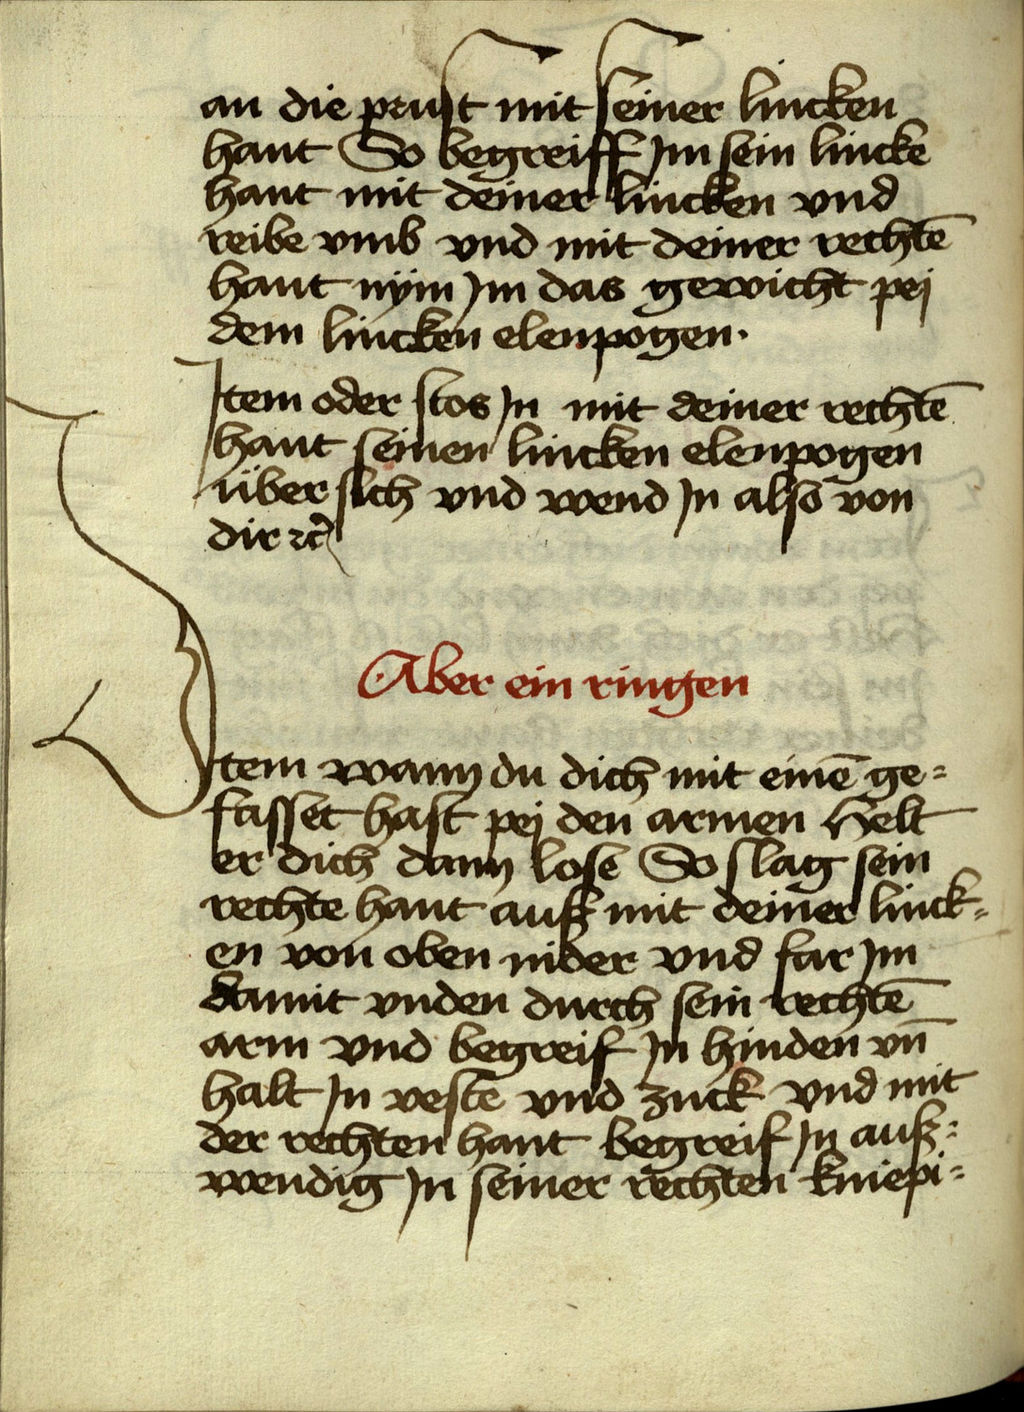 an die prust mit seiner lincken
hant So begreiff Im sein lincke
hant mit deiner lincken vnd
reibe vmb vnd mit deiner rechtē
hant nÿm Im das gewicht pej
dem lincken elenpogen.
Item oder stos In mit deiner rechtē
hant seinen lincken elenpogen
über sich vnd wend In also von
dir ꝛc̄
Aber ein ringen
Item wann du dich mit einē ge=
fasset hast pej den armen Helt
er dich dann lose So slag sein
rechte hant auß mit deiner linck=
en von oben nider vnd far Im
damit vnden durch sein rechtē
arm vnd begreif In hinden vn̄
halt In veste vnd zuck vnd mit
der rechten hant begreif In auß=
wendig In seiner rechten kniepi=